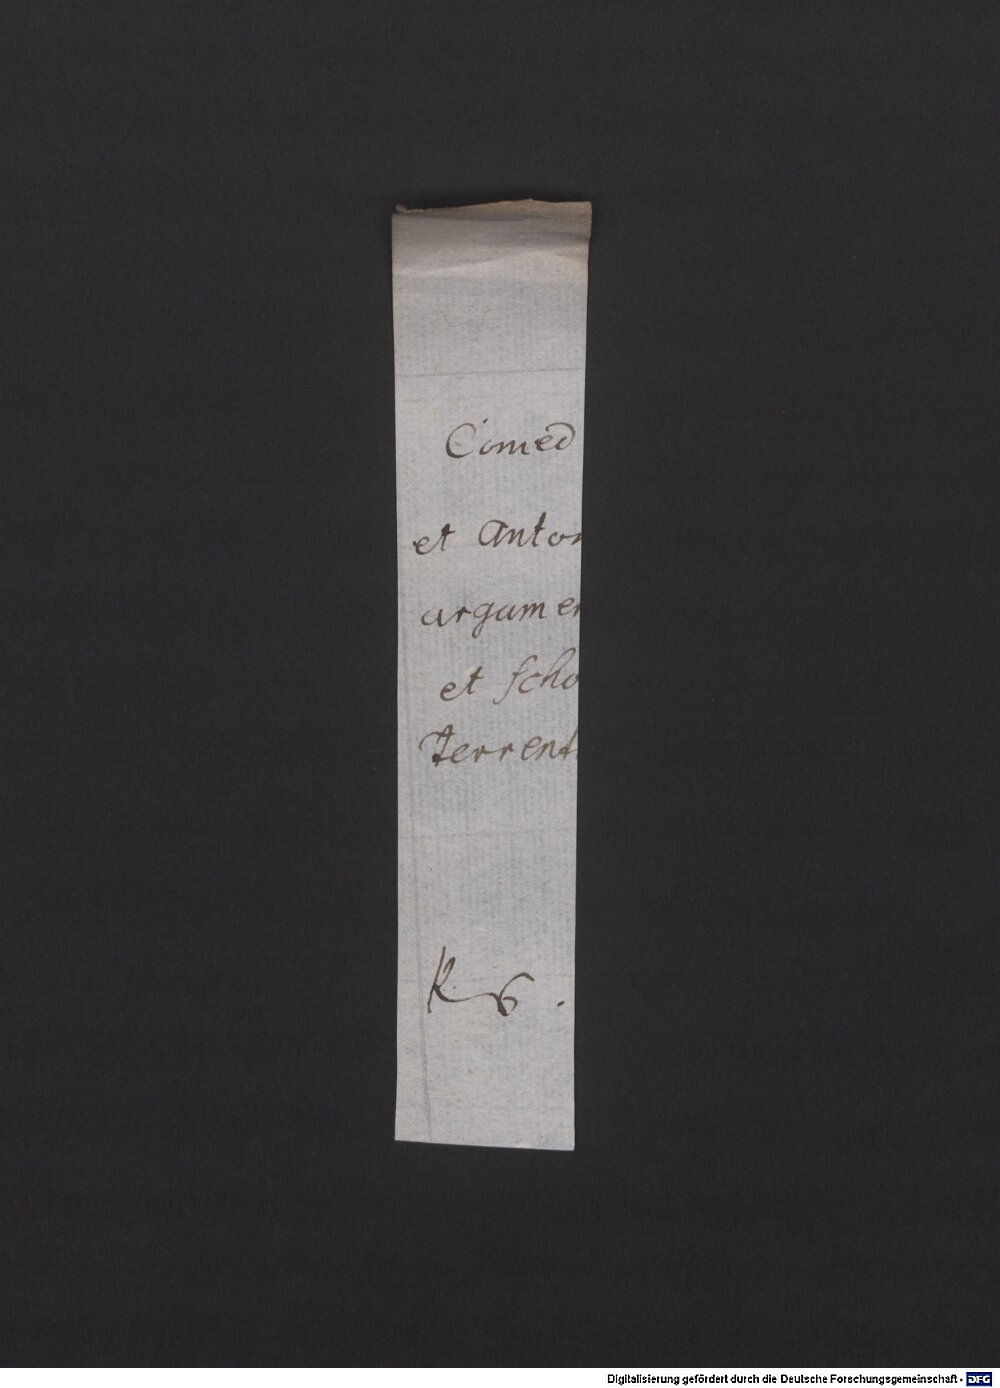 Comed
et Anton
argumen
et scho
Terrent
K 6.
Digitalisierung gefördert durch die Deutsche Forschungsgemeinschaft - DFG